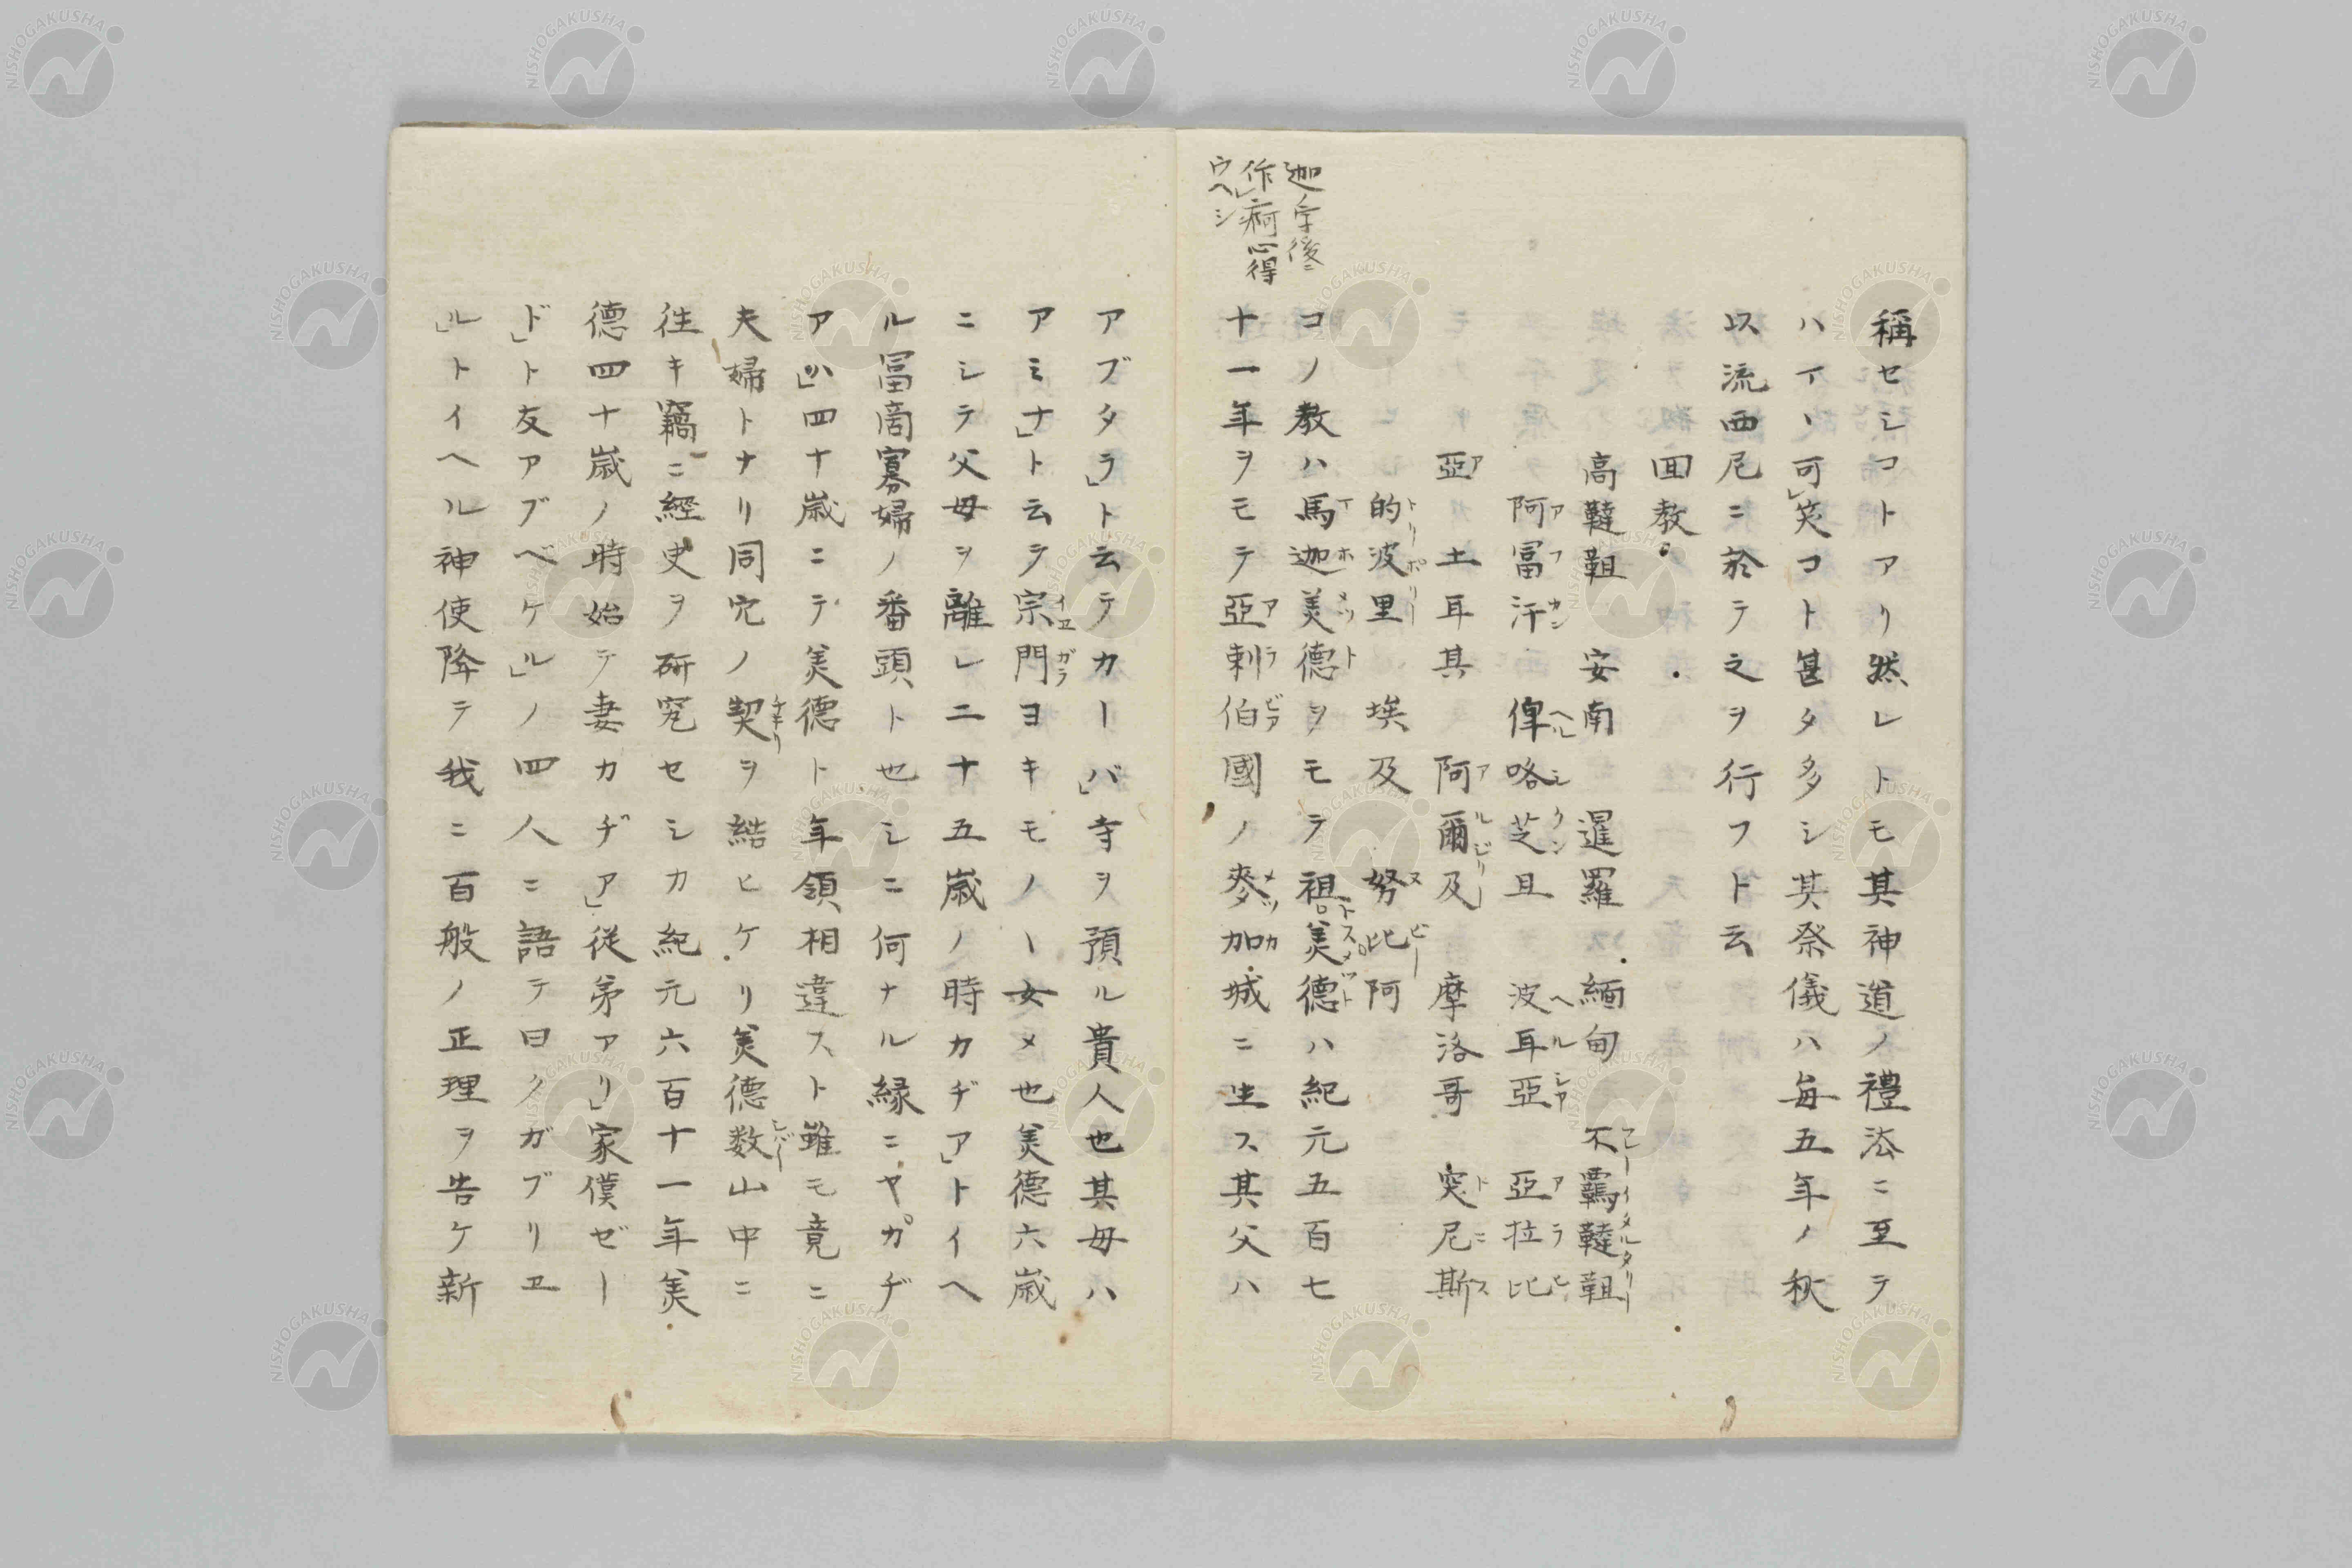 稱セシコトアリ然レトモ其神道ノ禮法ニ至テ
ハイト可笑コト甚タ多シ其祭儀ハ毎五年ノ秋
以流西尼ニ於テ之ヲ行フト云
回教
高韃靼 安南 暹羅 緬甸 不覊韃靼
阿冨汗 俾咯芝且 波耳亞 亞拉比
亞 土耳其 阿爾及 摩洛哥 突尼斯
的波里 埃及 努比阿
迦ノ字後ニ
作痾心得
ウヘシ
コノ教ハ馬迦美德ヲモテ祖トス美德ハ紀元五百七
十一年ヲモテ亞剌伯國ノ麥加城ニ生ス其父ハ
アブタラ」ト云テカーバ」寺ヲ預ル貴人也其母ハ
アミナ」ト云ヲ宗門ヨキモノヽ女メ也美德六歳
ニシテ父母ヲ離レ二十五歳ノ時カヂア」トイヘ
ル冨商寡婦ノ番頭ト也シニ何ナル縁ニヤカヂ
ア」ハ四十歳ニテ美德ト年領相違スト雖モ竟ニ
夫婦トナリ同穴ノ契ヲ結ヒケリ美德数山中ニ
往キ竊ニ經史ヲ研究セシカ紀元六百十一年美
德四十歳ノ時始テ妻カヂア」従弟アリ」家僕ゼー
ド」ト友アブベケル」ノ四人ニ語テ曰クガブリヱ
ル」トイヘル神使降テ我ニ百般ノ正理ヲ告ケ新